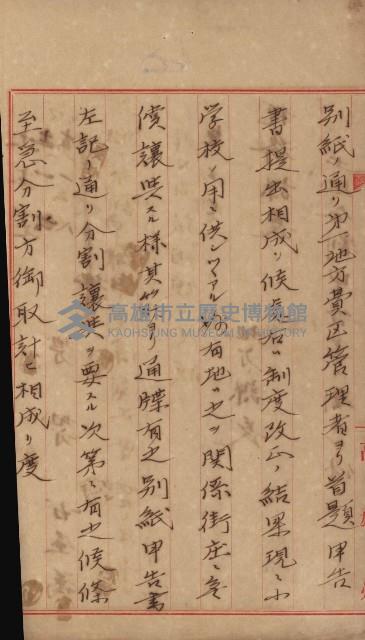 別紙ノ通リ地方費正管理者ヨリ首題申告
書提出相成リ候處右ハ制度改正ノ結果現ニ小
学校ノ用ニ供シツツアル有地ハ之ヲ関係街庄ニ無
償譲與スル様其筋ヨリ通牒有之別紙申告書
左記ノ通リ分割譲與ヲ要スル次第ニ有之候條
至急分割方御取計ヒ相成リ度
高雄市立歷史博物館
KAOHSIUNG MUSEUM OF HISTORY